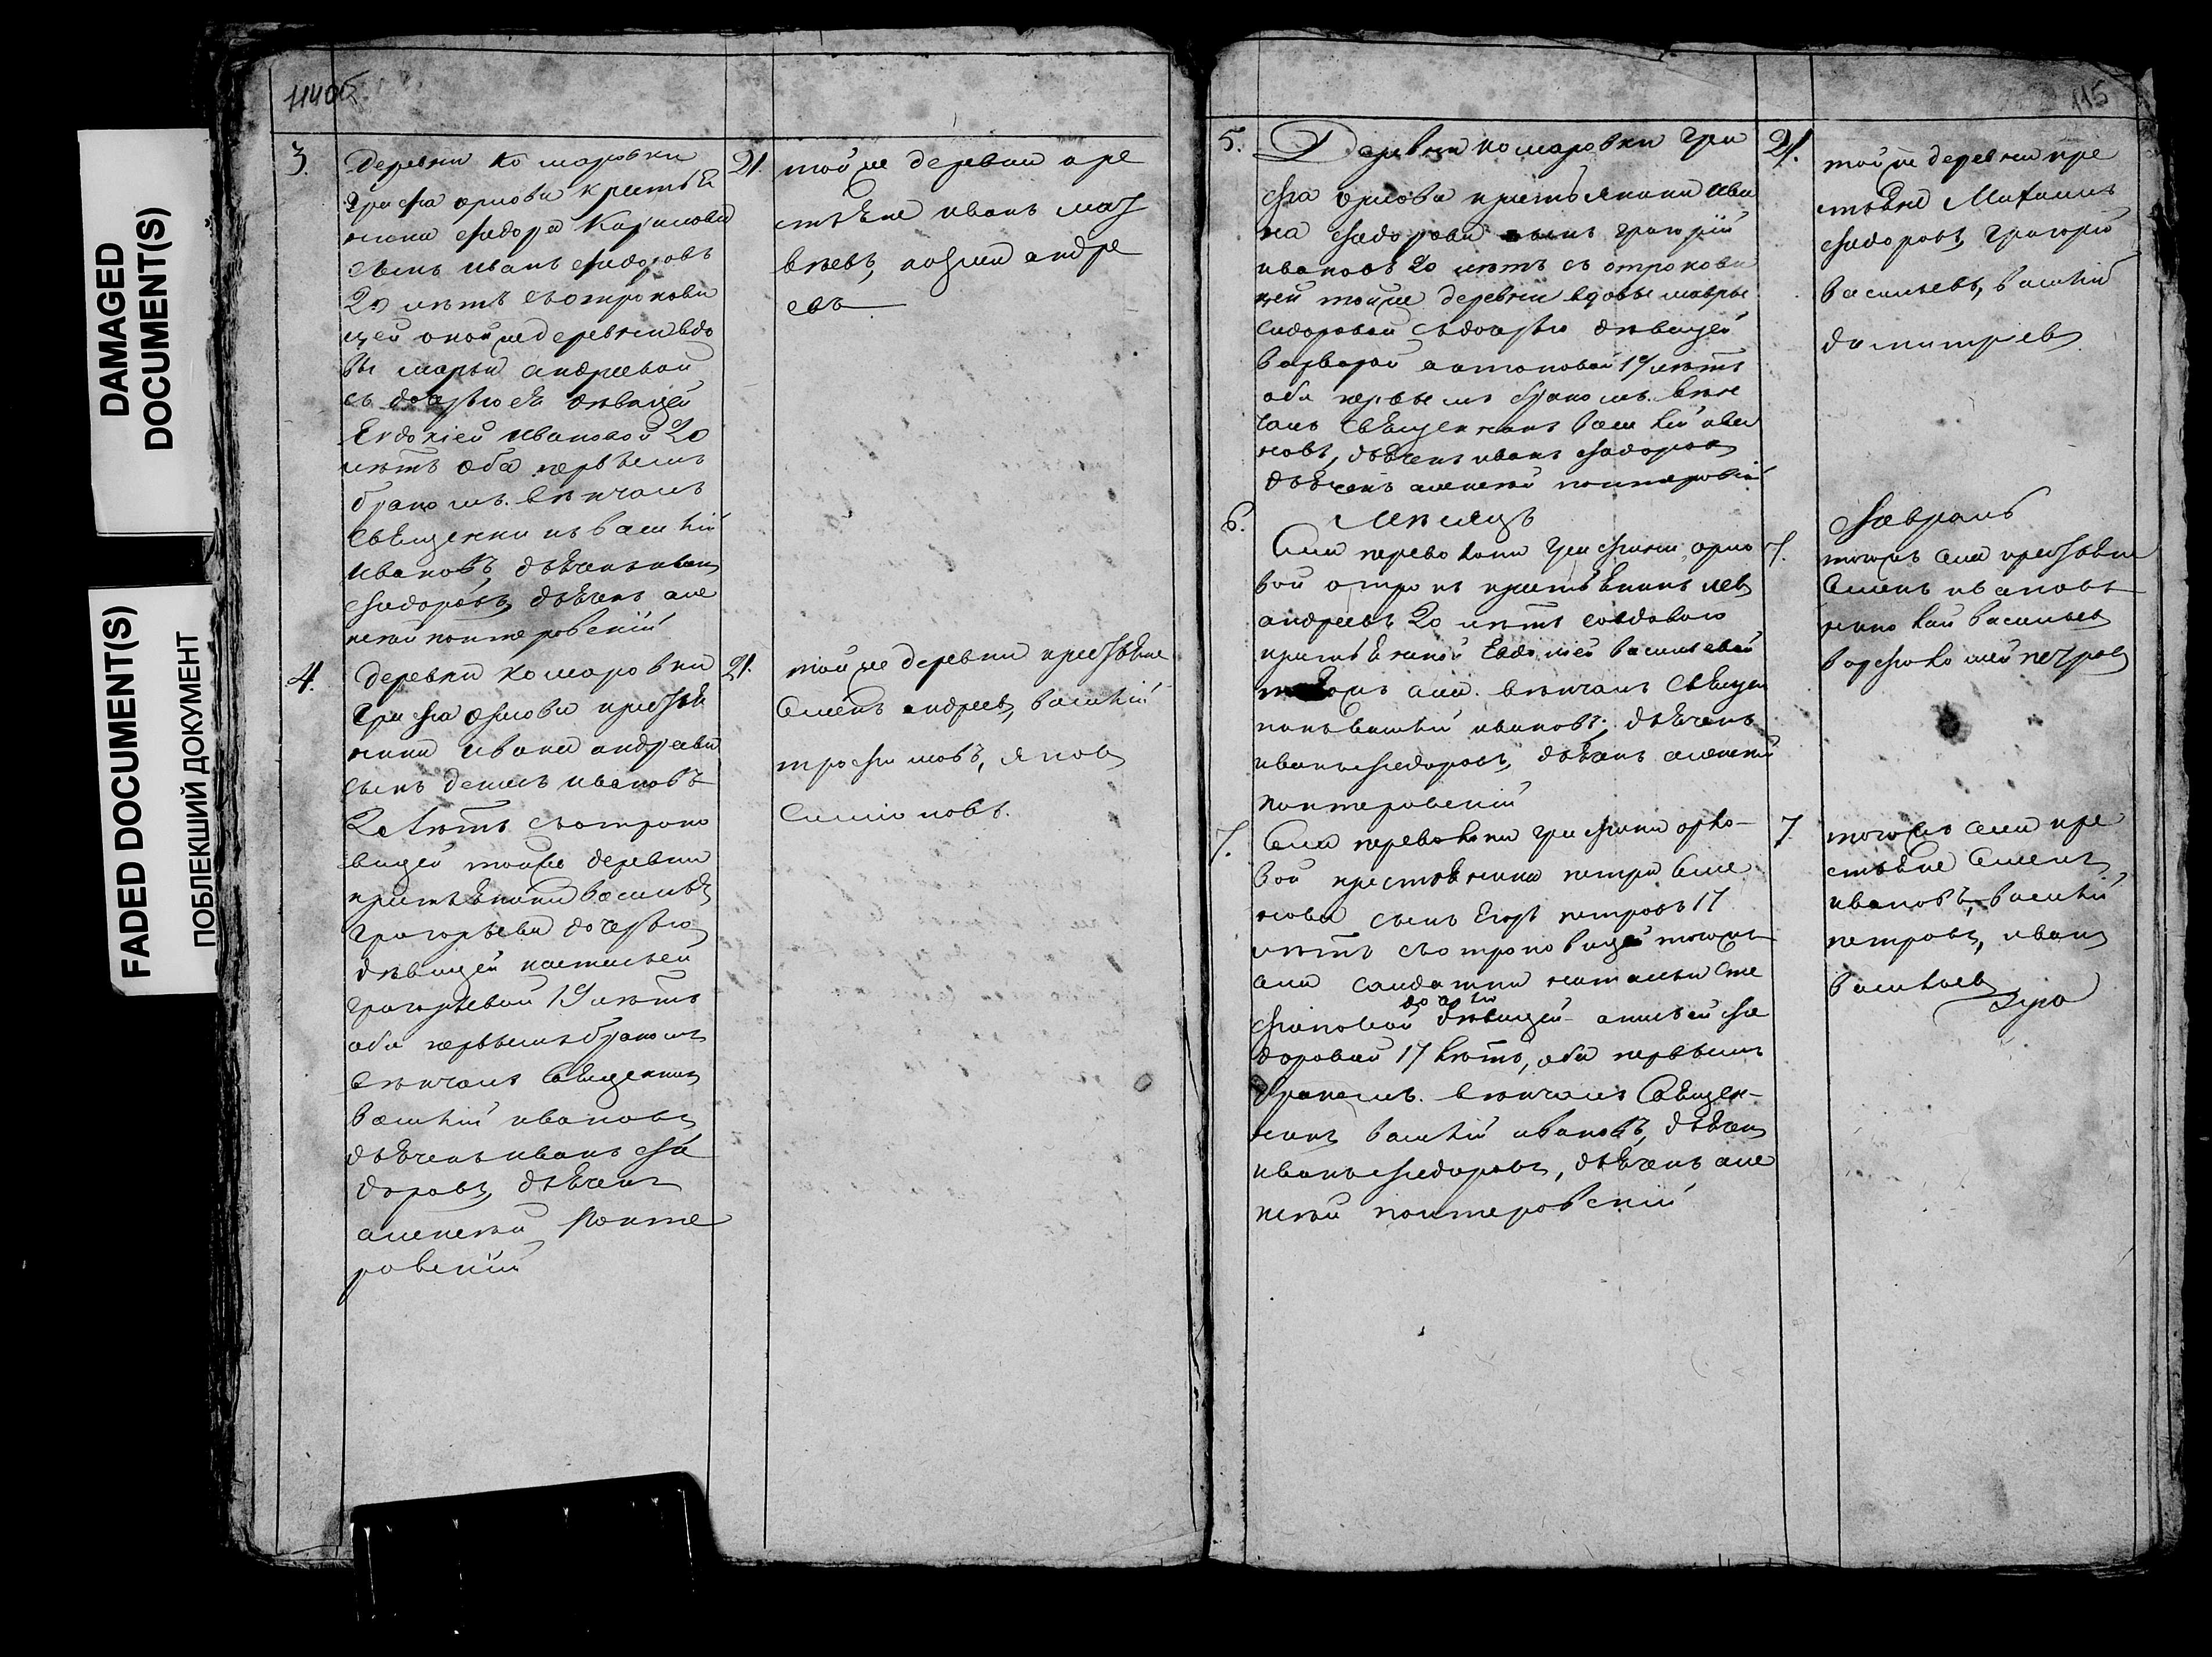 DAMAGED
DOCUMENT(S)
FADED DOCUMENT(S)
ПОБЛЕКШИЙ ДОКУМЕНТ
114об
3. деревни комаровки
графа орлова крестья
нина федора
сынъ иванъ федоровъ
20 летъ съ отрокови
цей оной же деревни вдо
вы марьи андреевой
съ дочерью ея девицей
Евдокiей ивановой 20
летъ оба первымъ
бракомъ. венчалъ
священникъ василiй
ивановъ, дьяченъ иванъ
федоровъ, дьяченъ але
ксей понтеровскiй
21. той же деревни кре
стьяне иванъ мат
веевъ, андре
евъ
4. деревни комаровки
графа орлова крестья
нина ивана андреева
сынъ ивановъ
летъ съ отроко
вицей той же деревни
крестьянина василья
григорьева дочерью
девицей настасьей
григорьевой 19 летъ
оба первымъ бракомъ
венчалъ священникъ
василiй ивановъ
дьяченъ иванъ фе
доровъ, дьяченъ
алексей понте
ровскiй
21. той же деревни крестьяне
семенъ андреевъ, василiй
трофимовъ, яковъ
115
5. Деревни комаровки гра
фа орлова крестьянина ива
на федорова сынъ григорiй
ивановъ 20 летъ съ отрокови
цей той же деревни вдовы мавры
сидоровой съ дочерью девицей
варварой антоновой 19 летъ
оба первымъ бракомъ. венч
чалъ священникъ василiй ива
новъ, дьяченъ иванъ федоровъ
дьяченъ алексей понтеровскiй
21. той же деревни кре
стьяне Михаилъ
федоровъ, григорiй
васильевъ, василiй
димитрiевъ
месяцъ
февраль
6. села перевоloки графини орло
вой отрокъ крестьянинъ левъ
андреевъ 20 летъ со вдовою
крестьянкой Евдокiей васильевой
села. венчалъ священ
никъ василiй ивановъ, дьяченъ
иванъ федоровъ, дьяченъ алексей
понтеровскiй
7. того жъ села крестьяне
семенъ ивановъ
николай васильевъ
варфоломей петровъ
7. села переволоки графини орло
вой крестьянина петра семе
нова сынъ Егоръ петровъ 17
летъ съ отроковицей того жъ
села солдатки натальи сте
фановой дочерью девицей анисьей фе
доровой 17 летъ, оба первымъ
бракомъ. венчалъ священ-
никъ василiй ивановъ, дьяченъ
иванъ федоровъ, дьяченъ але
ксей понтеровскiй
7. того жъ села кре
стьяне семенъ
ивановъ, василiй
петровъ, иванъ
васильевъ